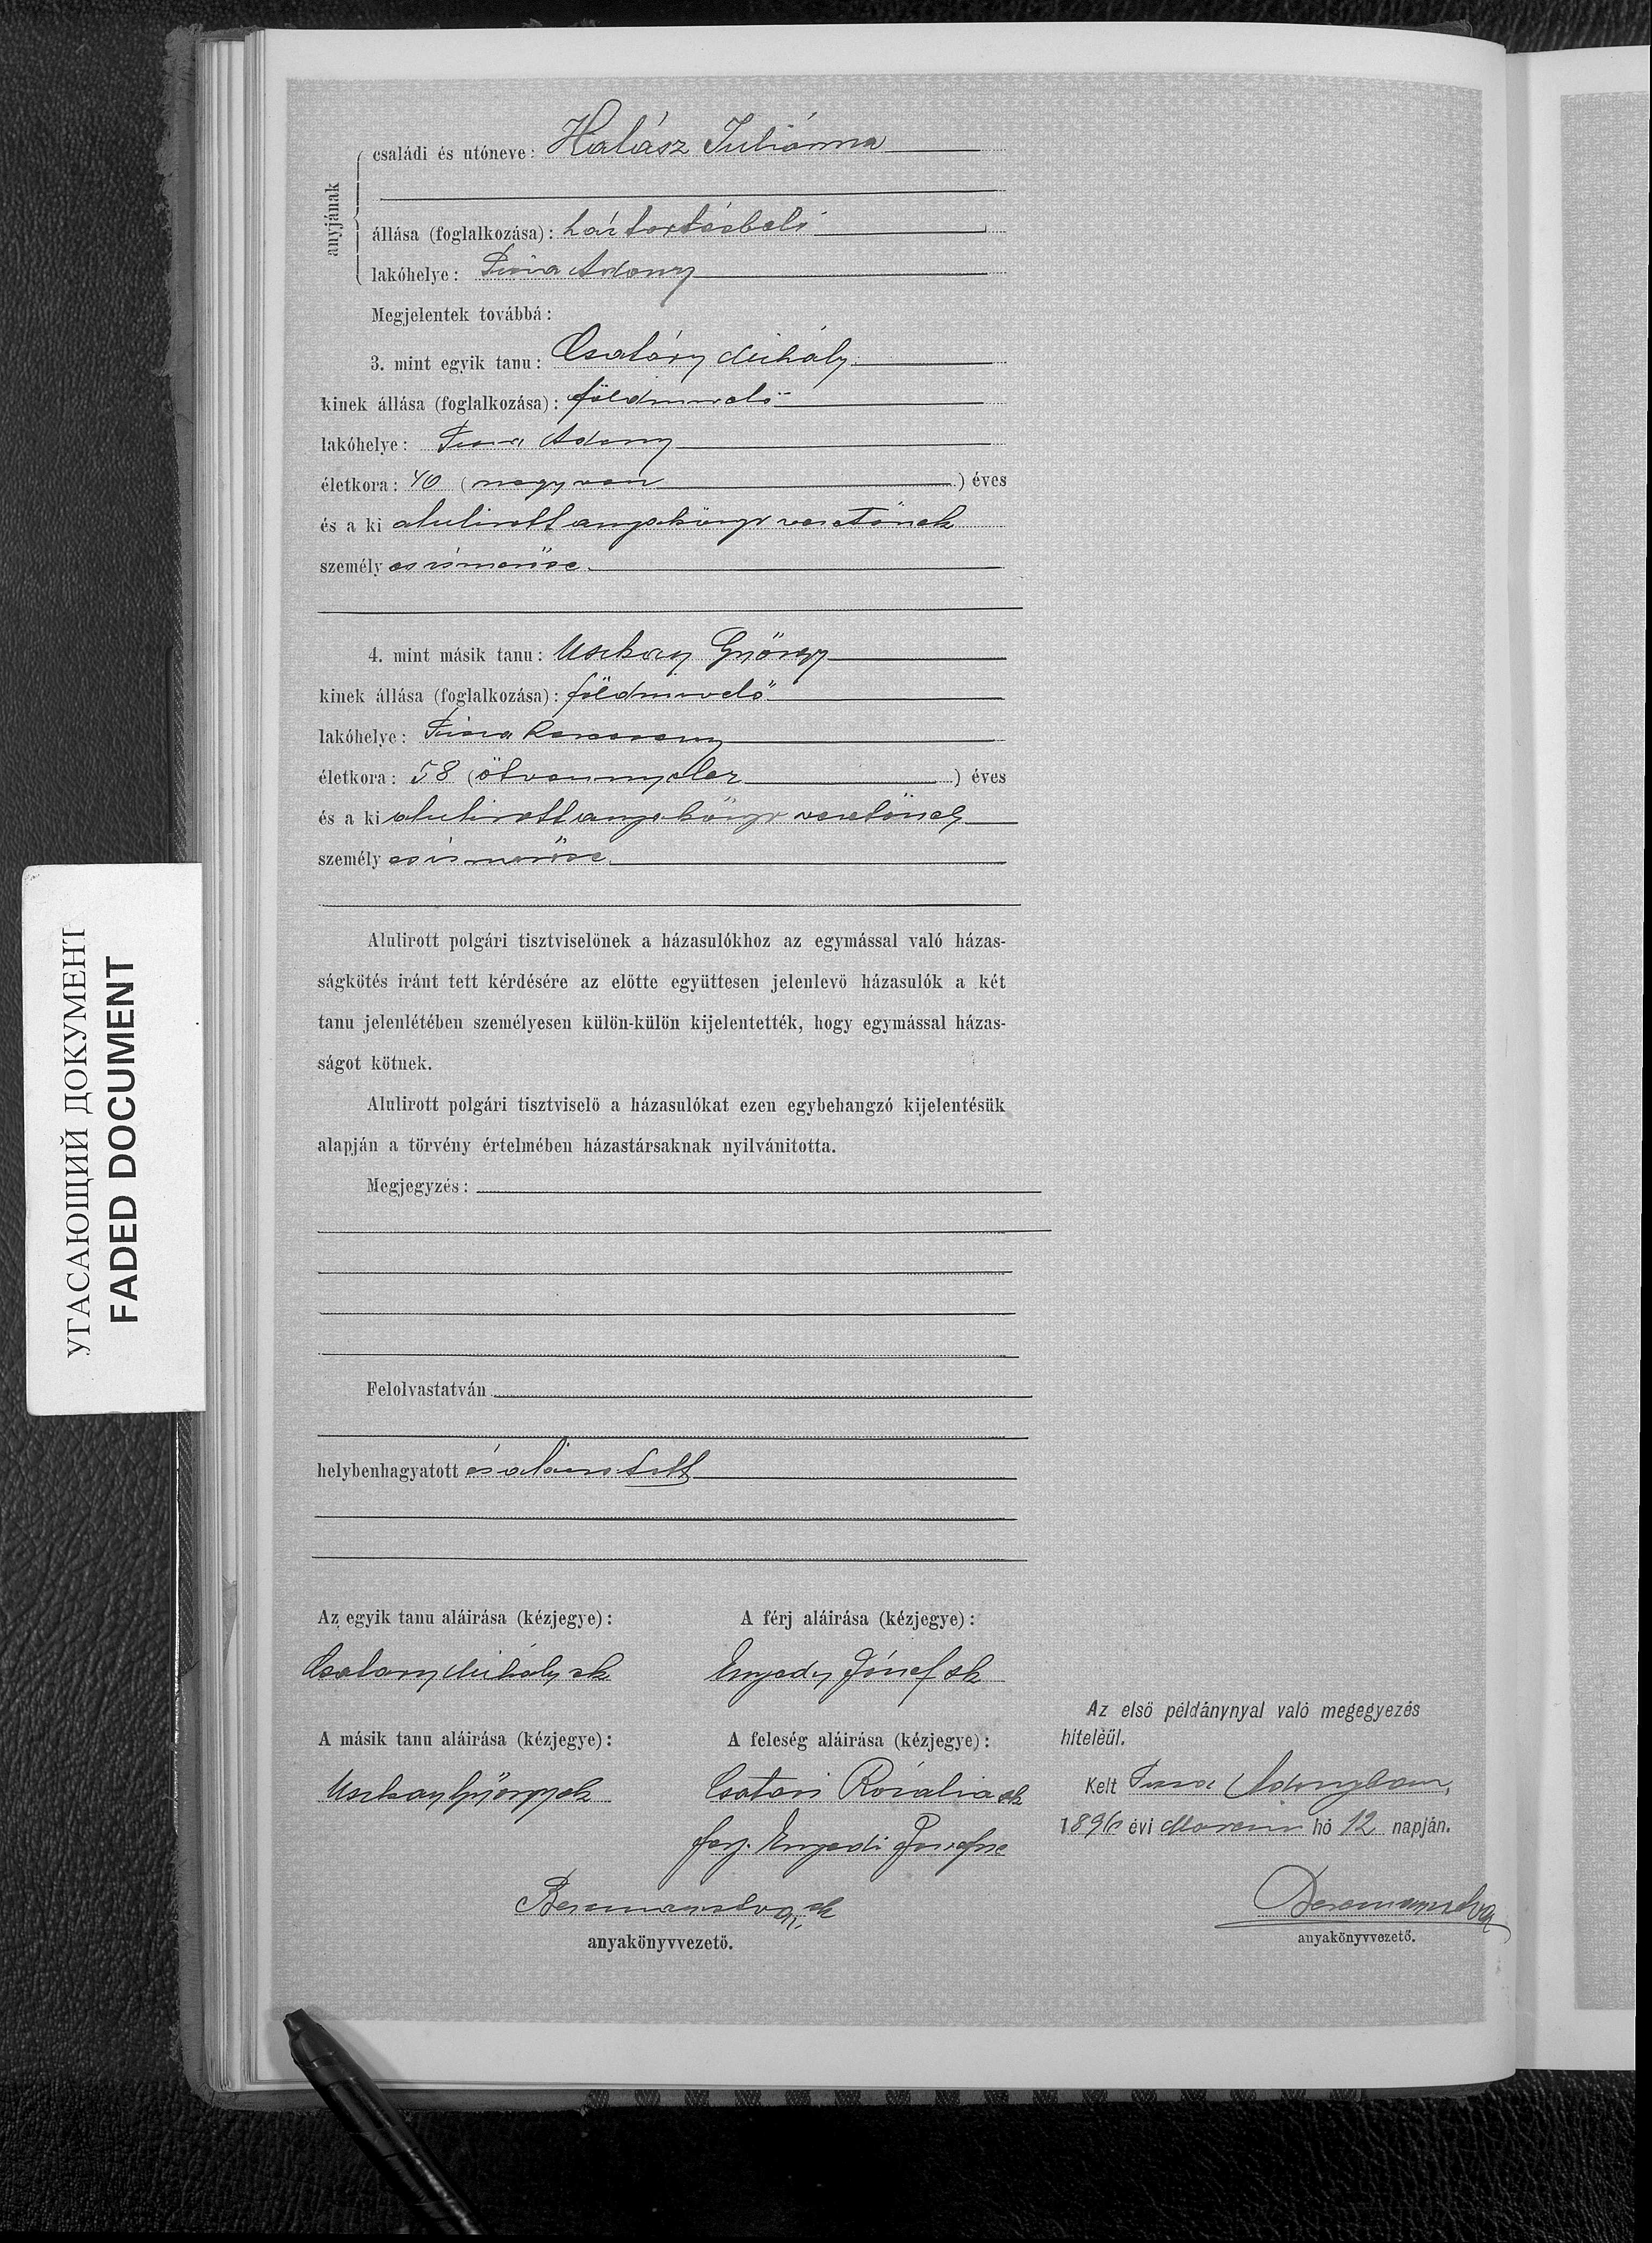 УГАСАЮЩИЙ ДОКУМЕНТ
FADED DOCUMENT
anyjának
családi és utóneve: Halász Juliánna
állása (foglalkozása): háztartásbeli
lakóhelye: Tisza Adony
Megjelentek továbbá:
3. mint egyik tanu: Csatáry Mihály
kinek állása (foglalkozása): földmivelő
lakóhelye: Tisza Adony
életkora: 40 (negyven) éves
és a ki alulirott anyakönyv vezetőnek
személyes ismerőse.
4. mint másik tanu: Uszkay György
kinek állása (foglalkozása): földmivelő
lakóhelye: Tisza
életkora: 58 (ötvennyolcz) éves
és a ki alulirott anyakönyv vezetőnek
személyes ismerőse.
Alulirott polgári tisztviselőnek a házasulókhoz az egymással való házas-
ságkötés iránt tett kérdésére az előtte együttesen jelenlevő házasulók a két
tanu jelenlétében személyesen külön-külön kijelentették, hogy egymással házas-
ságot kötnek.
Alulirott polgári tisztviselő a házasulókat ezen egybehangzó kijelentésük
alapján a törvény értelmében házastársaknak nyilvánitotta.
Megjegyzés:
Felolvastatván
helybenhagyatott és aláiratott
Az egyik tanu aláirása (kézjegye): A férj aláirása (kézjegye):
Csatary Mihály sk Enyedy József sk
A másik tanu aláirása (kézjegye): A feleség aláirása (kézjegye):
Uszkay György sk Csatari Rozália sk
Enyedi Józsefne
sk
anyakönyvvezető.
Az első példánynyal való megegyezés
hiteléül.
Kelt Tisza Adonyban,
1896 évi hó 12 napján.
anyakönyvvezető.